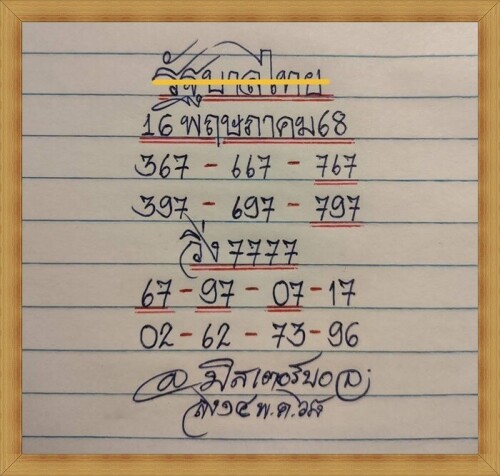 รัฐบาลไทย
16 พฤษภาคม68
367 - 667 - 767
397 - 697 - 797
วิ่ง 7777
67 - 97 - 07 - 17
02 - 62 - 73 - 96
มิสเตอร์บอล
ส่ง๑๔ พ.ค. ๖๘